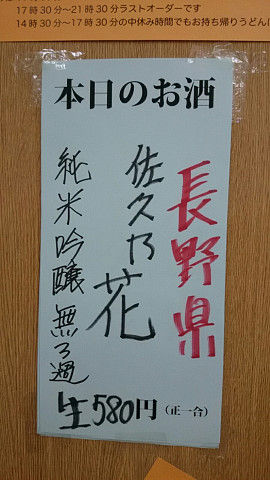 17時30分〜21時30分ラストオーダーです
14時30分〜17時30分の中休み時間でもお持ち帰りうどん
本日のお酒
長野県
佐久乃花
純米吟醸無ろ過
生580円(正一合)